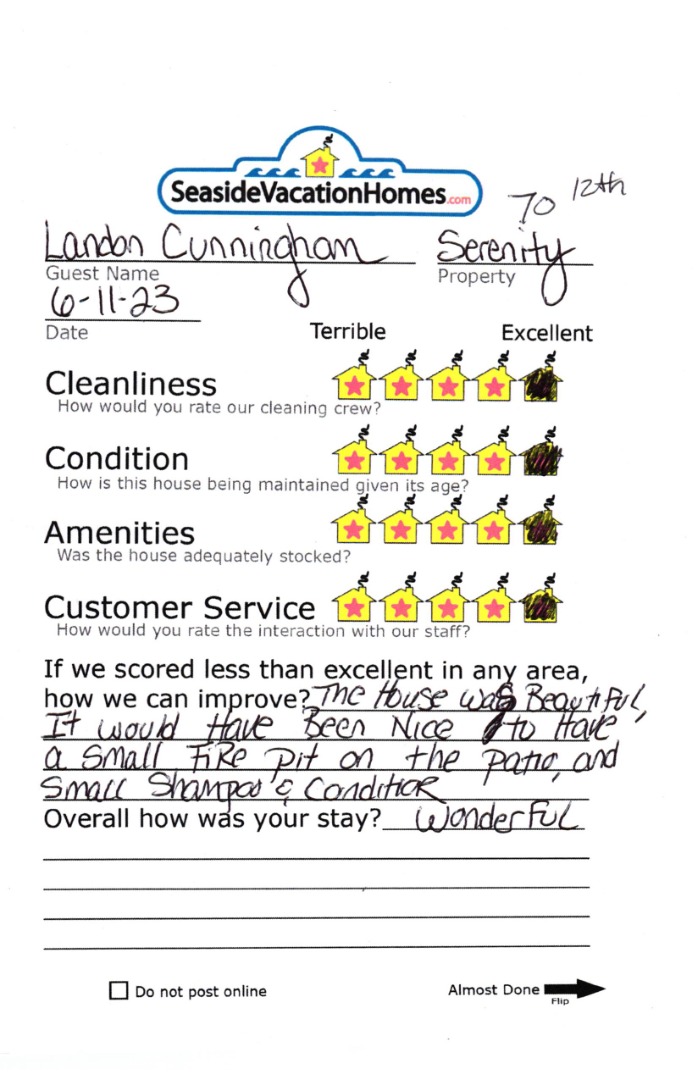 SeasideVacationHomes.com
TO 12th
Landon Cunningham Serenity
Guest Name Property
6-11-23
Date Terrible Excellent
Cleanliness
How would you rate our cleaning crew?
Condition
How is this house being maintained given its age?
Amenities
Was the house adequately stocked?
Customer Service
How would you rate the interaction with our staff?
If we scored less than excellent in any area,
how we can improve? The House was Beautiful,
It would Have Been Nice to Have
a Small Fire pit on the patio, and
Small Shampoo & Conditior
Overall how was your stay? Wonderful
Do not post online Almost Done
Flip